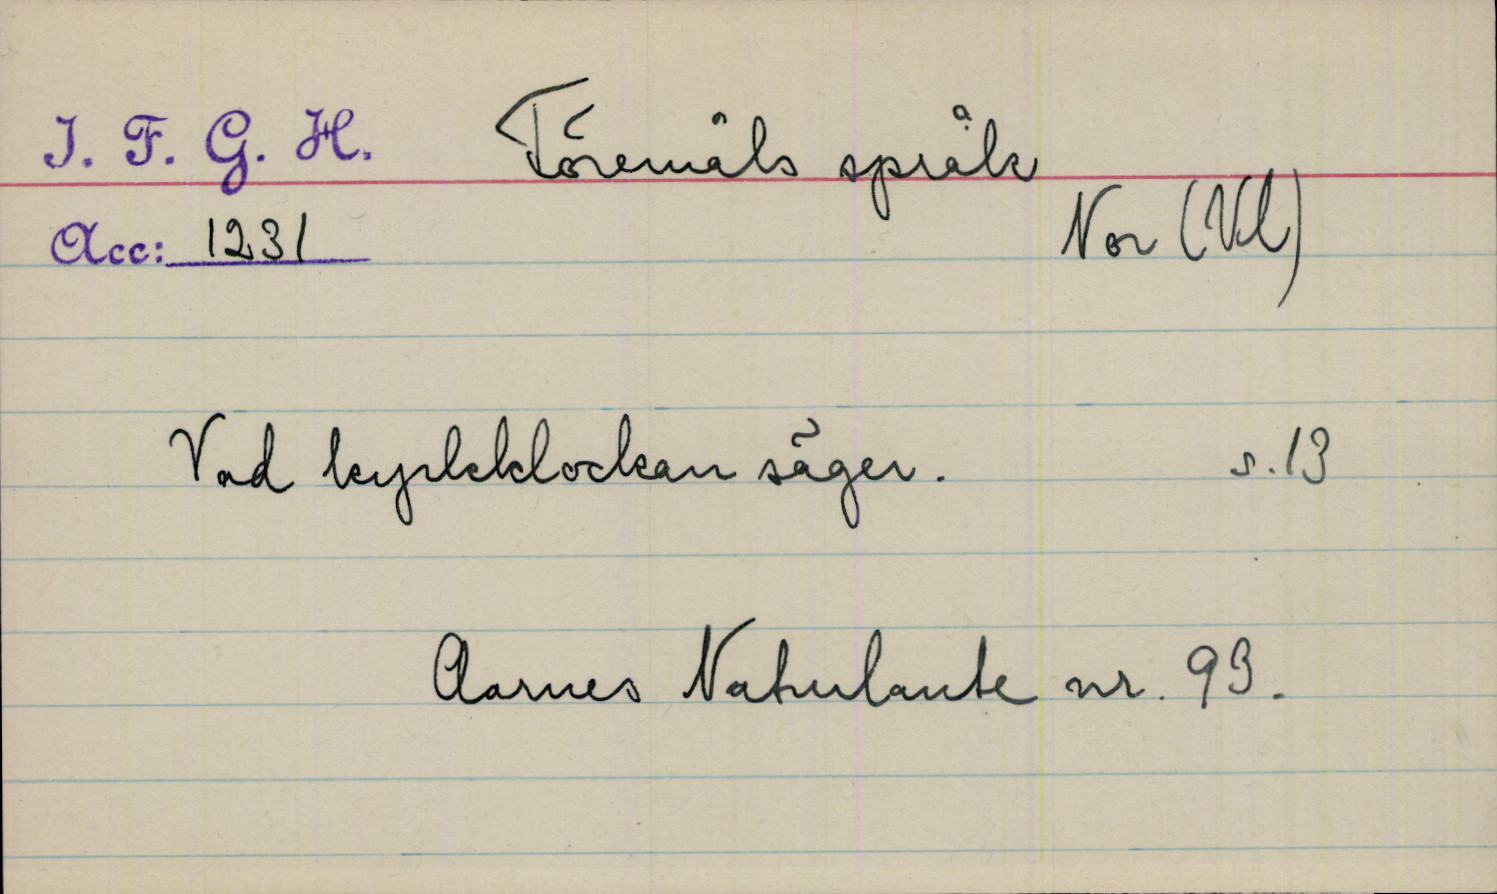 I. F. G. H. Föremåls språk
Acc: 1231 Nor (Vl)
Vad kyrkklockan säger. s. 13
Aarnes Naturlaute nr. 93.